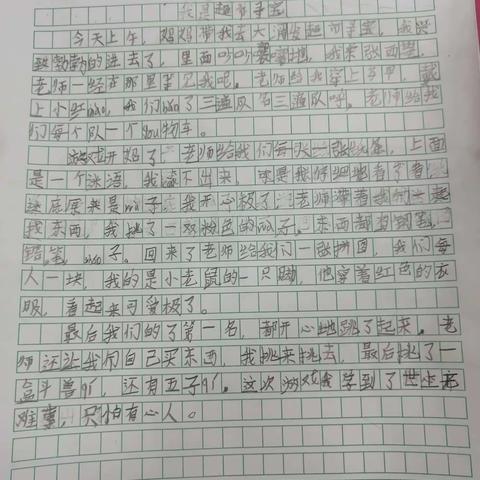 我是超市寻宝
今天上午，妈妈带我去大润发超市寻宝，我兴
致勃勃的进去了，里面吵吵嚷嚷地，我东张西望，
老师一经在那里等我呢。老师给我穿上马甲，戴
上小红bāo，我们bào了三道队名三道队呀。老师给我
们每个队一个gòu物车。
游戏开始了，老师给我们每人一张纸条，上面
是一个迷语，我读不出来，可是我仔细地看了看，
谜底原来是wà子，我开心极了，老师带着我们一起
找东西，我挑了一双粉色的wà子。东西都齐
铅笔、子。回来了老师给我们一张拼图，我们每
人一块，我的是小老鼠的一只脚，他穿着红色的衣
服，看起来可爱极了。
最后我们的了第一名，都开心地跳了起来。老
师还让我们自己买东西，我挑来挑去，最后挑了一
盒斗兽qí，还有五子qí。这次游戏我学到了世上无
难事，只怕有心人。